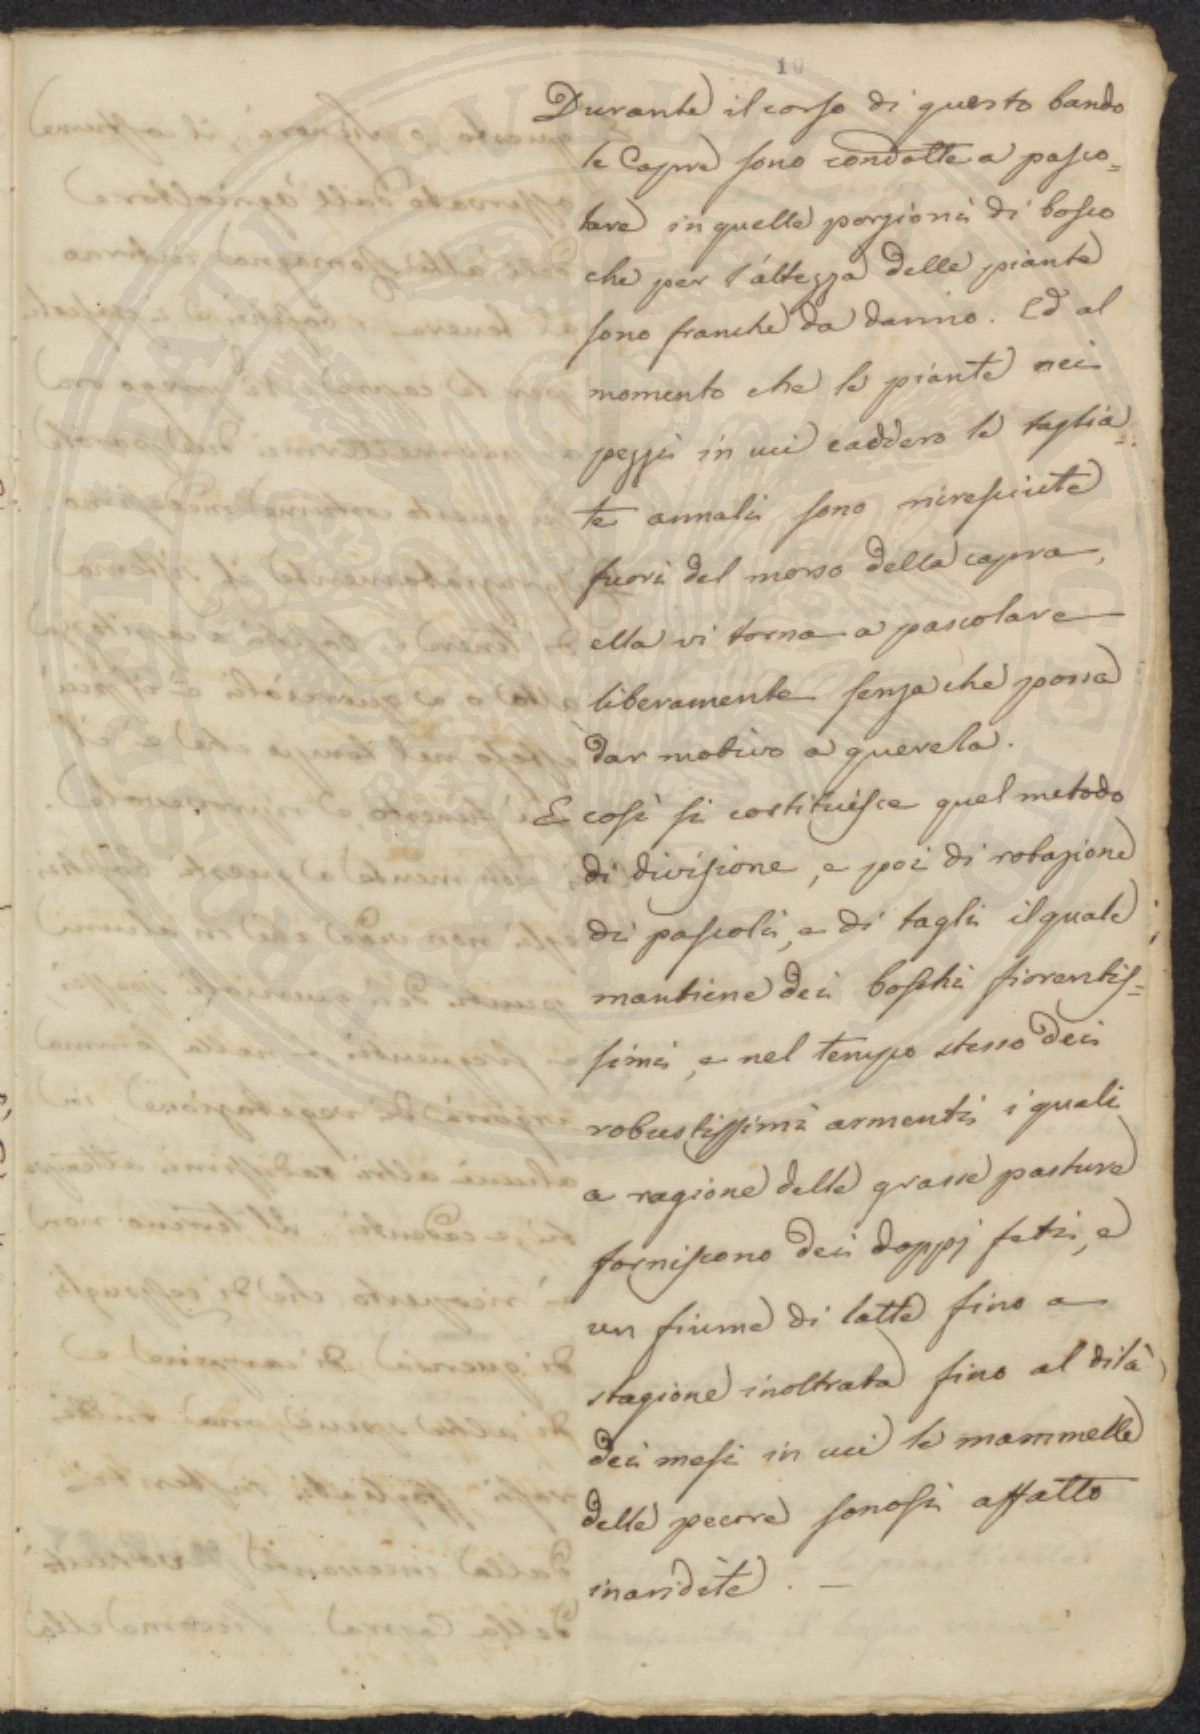 10
Durante il corso di questo bando
le Capre sono condotte a pasco=
lare in quelle porzioni di bosco
che per l'altezza delle piante
sono franche da danno. Ed al
momento che le piante nei
pezzi in cui caddero le taglia=
te annali sono ricresciute
fuori del morso della capra,
ella vi torna a pascolare
liberamente senza che possa
dar motivo a querela.
E così si costituisce quel metodo
di divisione, e poi di rotazione
di pascoli, e di tagli il quale
mantiene dei boschi fiorentis=
simi, e nel tempo stesso dei
robustissimi armenti i quali
a ragione delle grasse pasture
forniscono dei doppj feti, e
un fiume di latte fino a
stagione inoltrata fino al di là
dei mesi in cui le mammelle
delle pecore sonosi affatto
inaridite. —